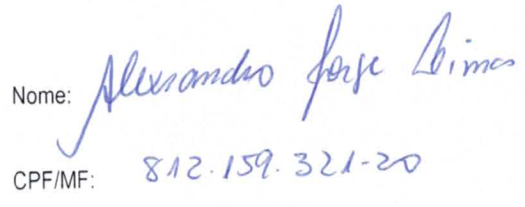 Nome: Alexsandro Jorge Dimas
CPF/MF: 812.159.321-20